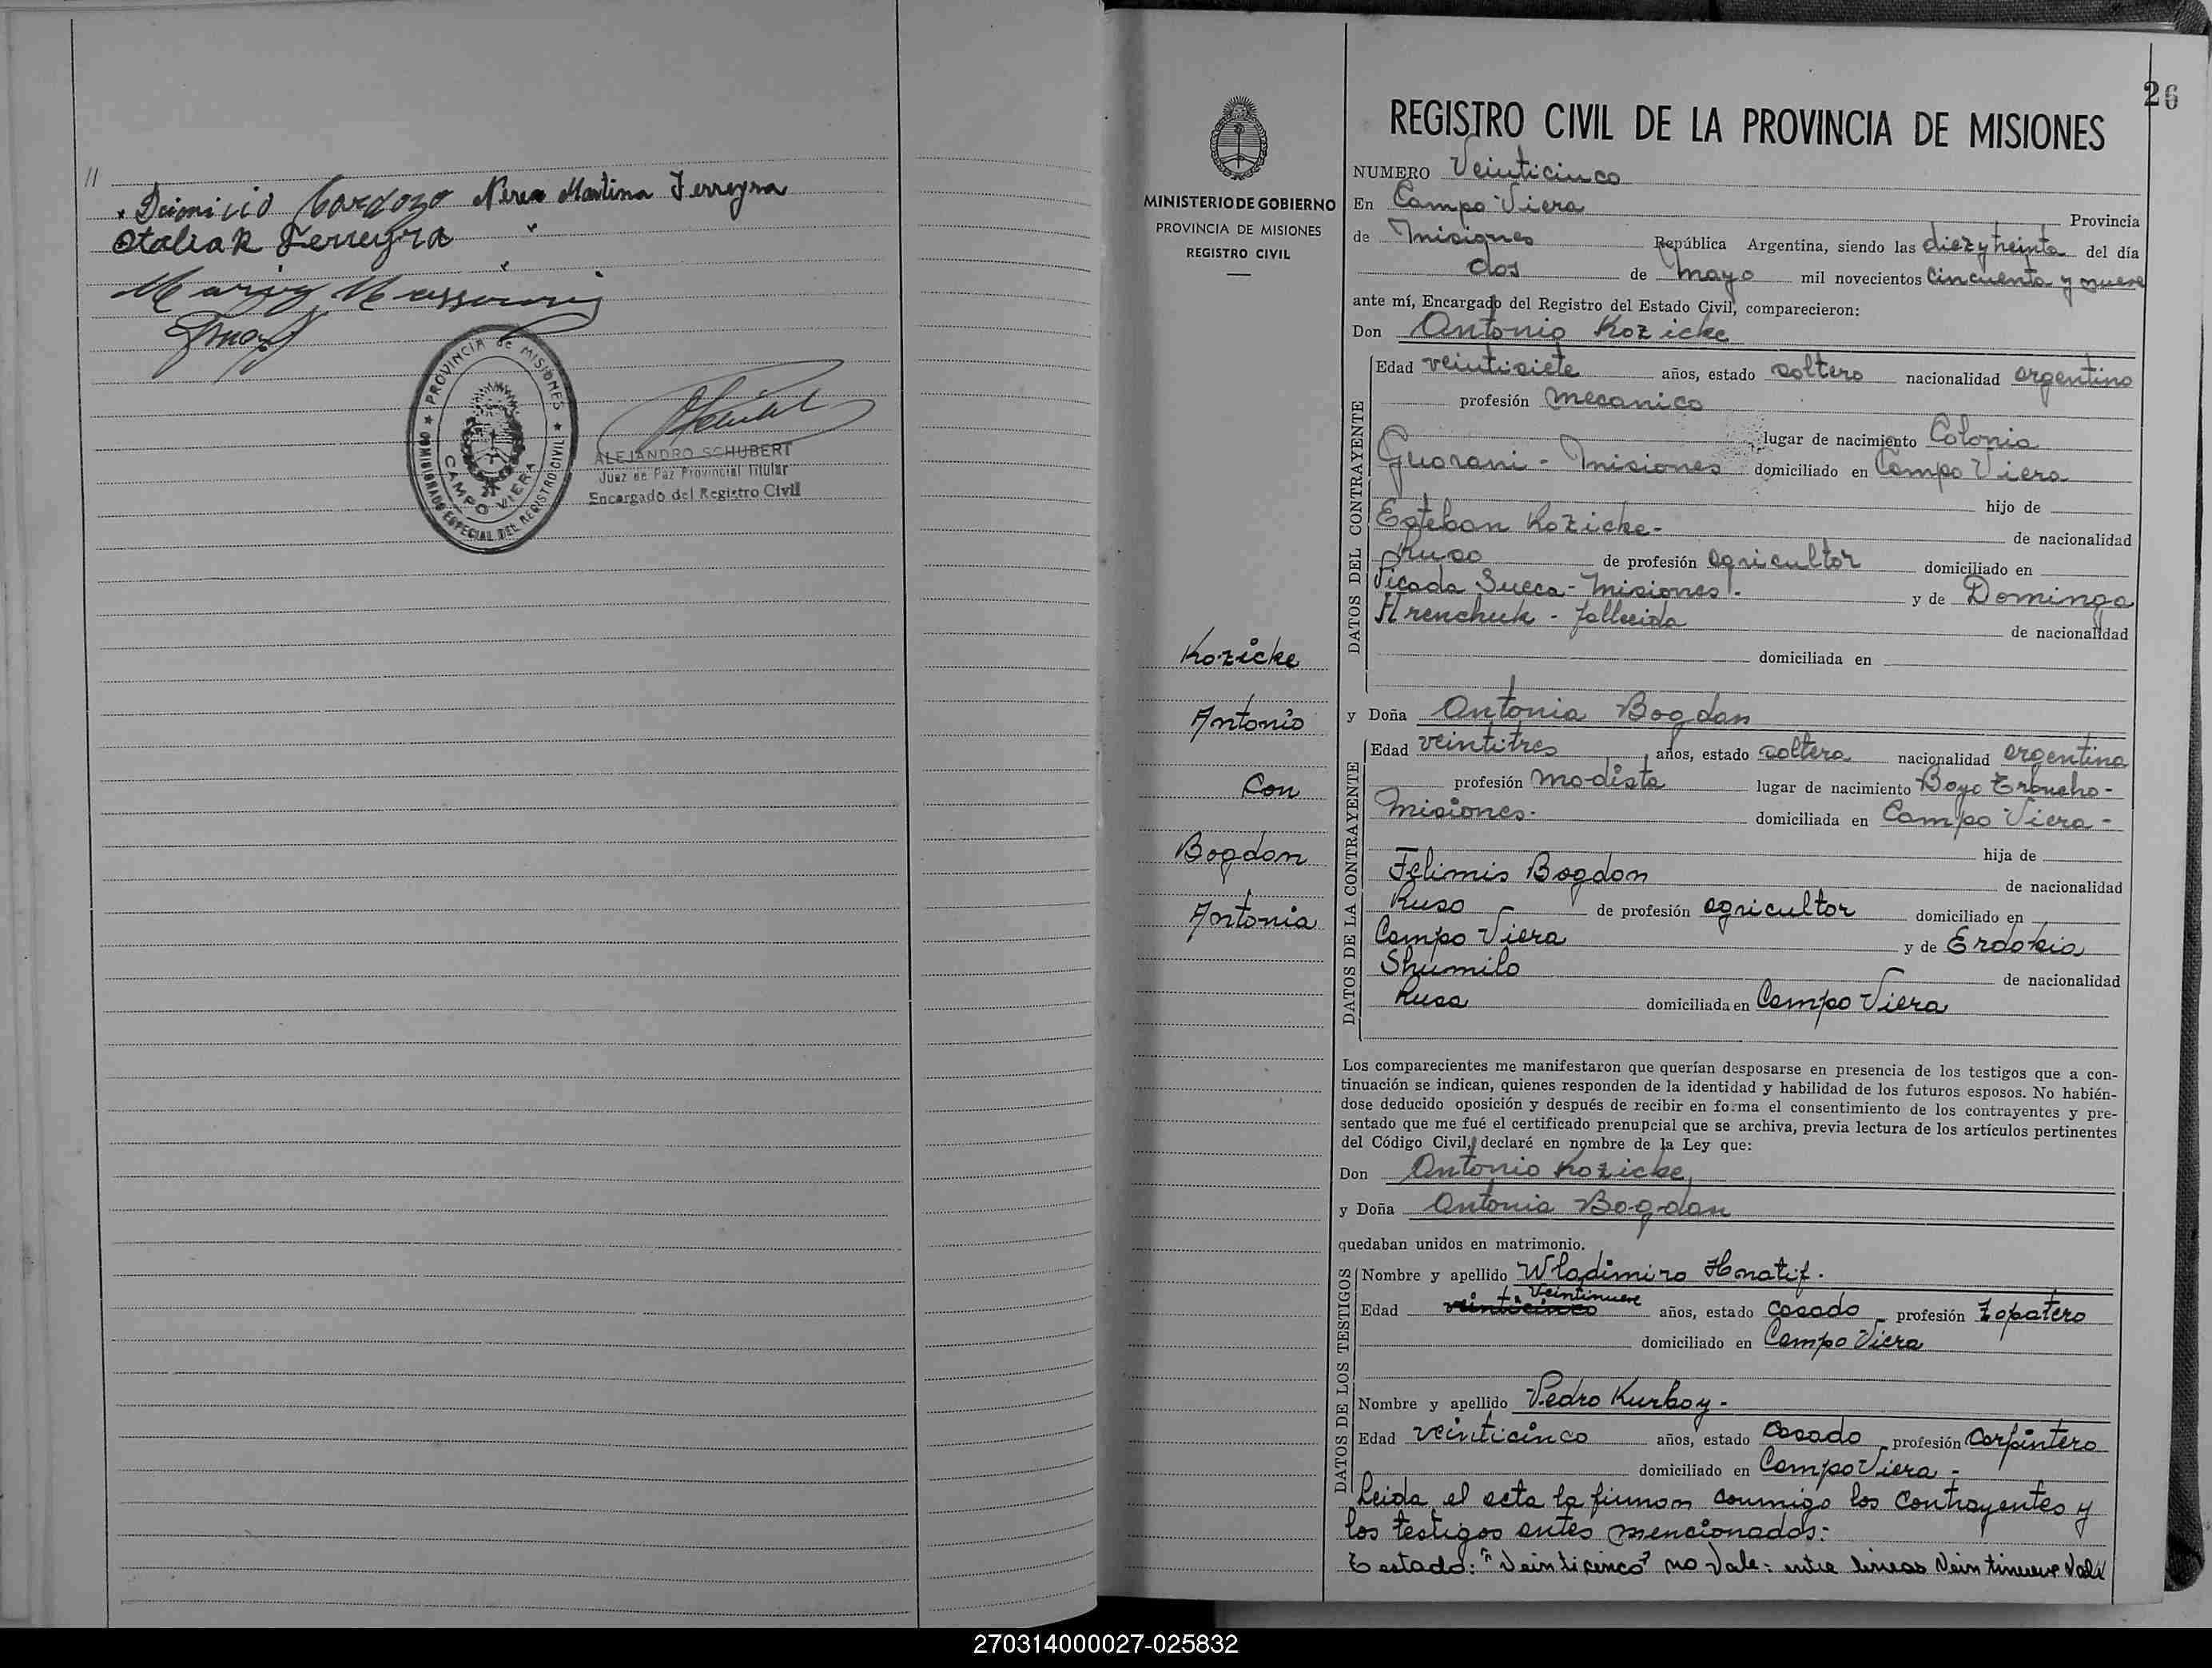 "
Dionicio Cardozo Nerea Martina Ferreyra
Otalia R Ferreyra "
"
PROVINCIA de MISIONES
CAMPO VIERA
COMISIONADO ESPECIAL DEL REGISTRO CIVIL
ALEJANDRO SCHUBERT
Juez de Paz Provincial Titular
Encargado del Registro Civil
26
MINISTERIO DE GOBIERNO
PROVINCIA DE MISIONES
REGISTRO CIVIL
Kozicke
Antonio
Con
Bogdan
Antonia
REGISTRO CIVIL DE LA PROVINCIA DE MISIONES
NUMERO Veinticinco
En Campo Viera Provincia
de Misiones República Argentina, siendo las diez y treinta del día
dos de mayo mil novecientos cincuenta y nueve
ante mí, Encargado del Registro del Estado Civil, comparecieron:
Don Antonio Kozicke
DATOS DEL CONTRAYENTE
Edad veintisiete años, estado soltero nacionalidad argentino
profesión mecanico
lugar de nacimiento Colonia
Guarani - Misiones domiciliado en Campo Viera
hijo de
Esteban Kozicke- de nacionalidad
Ruso de profesión agricultor domiciliado en
Picada Sueca - Misiones. - y de Dominga
Hrenchuk - fallecida de nacionalidad
domiciliada en
y Doña Antonia Bogdan
DATOS DE LA CONTRAYENTE
Edad veintitres años, estado soltera nacionalidad argentina
profesión modista lugar de nacimiento Bayo
Misiones. domiciliada en Campo Viera -
hija de
Felimis Bogdan de nacionalidad
Ruso de profesión agricultor domiciliado en
Campo Viera y de Erdokia
Shumilo de nacionalidad
Rusa domiciliada en Campo Viera
Los comparecientes me manifestaron que querían desposarse en presencia de los testigos que a con-
tinuación se indican, quienes responden de la identidad y habilidad de los futuros esposos. No habién-
dose deducido oposición y después de recibir en forma el consentimiento de los contrayentes y pre-
sentado que me fué el certificado prenupcial que se archiva, previa lectura de los artículos pertinentes
del Código Civil, declaré en nombre de la Ley que:
Don Antonio Kozicke
y Doña Antonia Bogdan
quedaban unidos en matrimonio.
DATOS DE LOS TESTIGOS
Nombre y apellido Wladimiro Hnatif.
Veintinueve
Edad veinticinco años, estado casado profesión Zapatero
domiciliado en Campo Viera
Nombre y apellido Pedro Kurboy -
Edad veinticinco años, estado casado profesión Carpintero
domiciliado en Campo Viera -
Leida el acta la firman conmigo los Contrayentes y
los testigos antes mencionados:
Testado: "Veinticinco" no Vale: entre lineas Veintinueve Vale
270314000027-025832